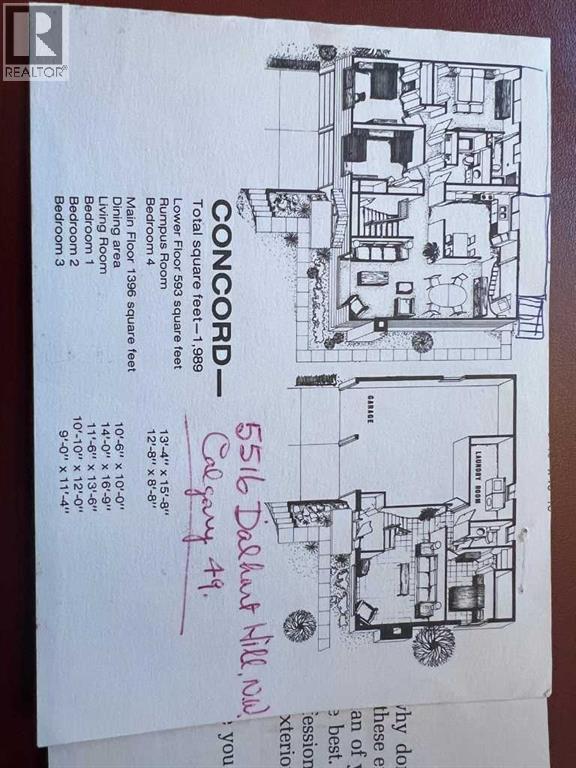 REALTOR®
CONCORD—
Total square feet—1,989
Lower Floor 593 square feet
Rumpus Room 13'-4" x 15'-8"
Bedroom 4 12'-8" x 8'-8"
Main Floor 1396 square feet
Dining area 10'-6" x 10'-0"
Living Room 14'-0" x 16'-9"
Bedroom 1 11'-6" x 13'-6"
Bedroom 2 10'-10" x 12'-0"
Bedroom 3 9'-0" x 11'-4"
GARAGE
LAUNDRY ROOM
5516 Dalhart Hill, N.W.
Calgary 49.
why don
these e
an of y
e best.
ession
exterio
you